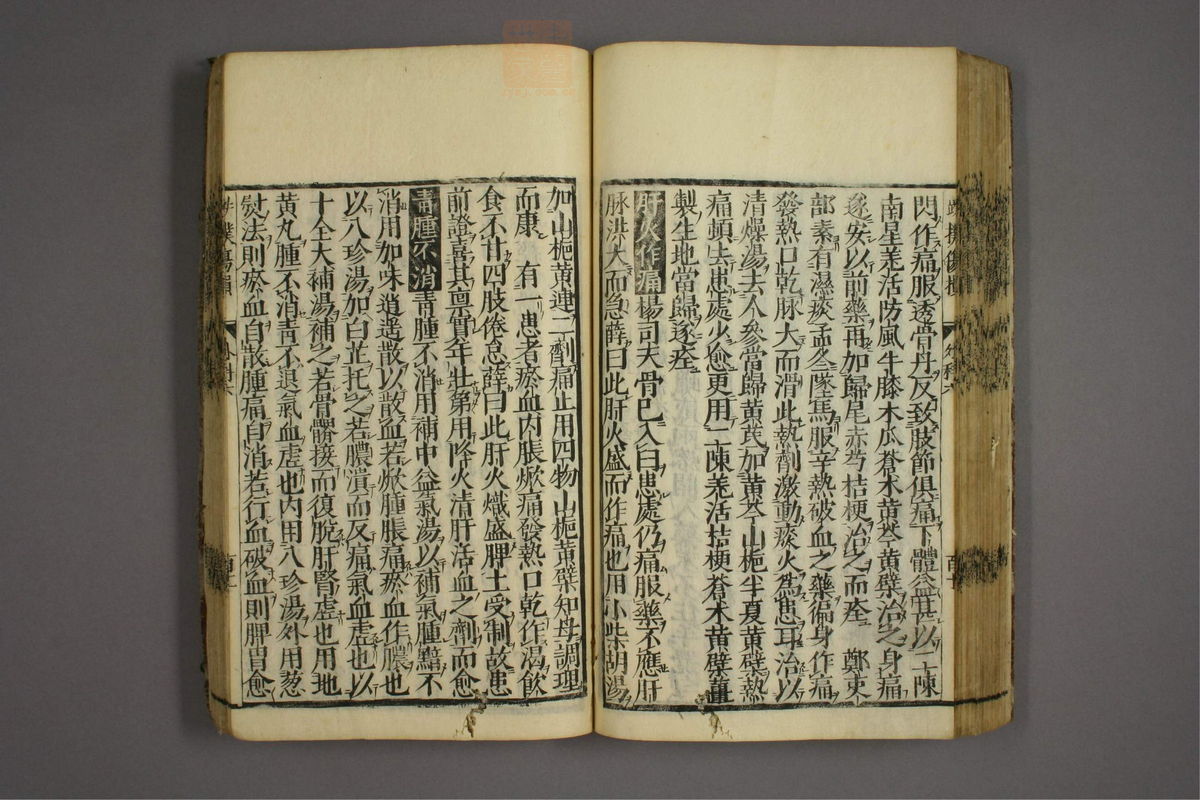 閃作痛服透骨丹反致肢節俱痛下體益甚以二陳
南星羌活防風牛膝木瓜蒼朮黃芩黃蘗治之身痛
遂安以前藥再加歸尾赤芍桔梗治之而痊　鄭吏
部素有濕痰孟冬墜馬服辛熱破血之藥徧身作痛
發熱口乾脉大而滑此熱劑激動痰火為患耳治以
清燥湯去人參當歸黃芪加黃芩山梔半夏黃蘗熱
痛頓去患處少愈更用二陳羌活桔梗蒼朮黃蘗薑
製生地當歸遂痊
肝火作痛楊司天骨已入臼患處仍痛服藥不應肝
脉洪大而急薛曰此肝火盛而作痛也用小柴胡湯
加山梔黃連二劑痛止用四物山梔黃蘗知母調理
而康　有一患者瘀血內脹焮痛發熱口乾作渴飲
食不甘四肢倦怠薛曰此肝火熾盛脾土受制故患
前證喜其禀實年壯第用降火清肝活血之劑而愈
青腫不消青腫不消用補中益氣湯以補氣腫黯不
消用加味逍遙散以散血若焮腫脹痛瘀血作膿也
以八珍湯加白芷托之若膿潰而反痛氣血虛也以
十全大補湯補之若骨髎接而復脫肝腎虛也用地
黃丸腫不消青不退氣血虛也內用八珍湯外用葱
熨法則瘀血自散腫痛自消若行血破血則脾胃愈